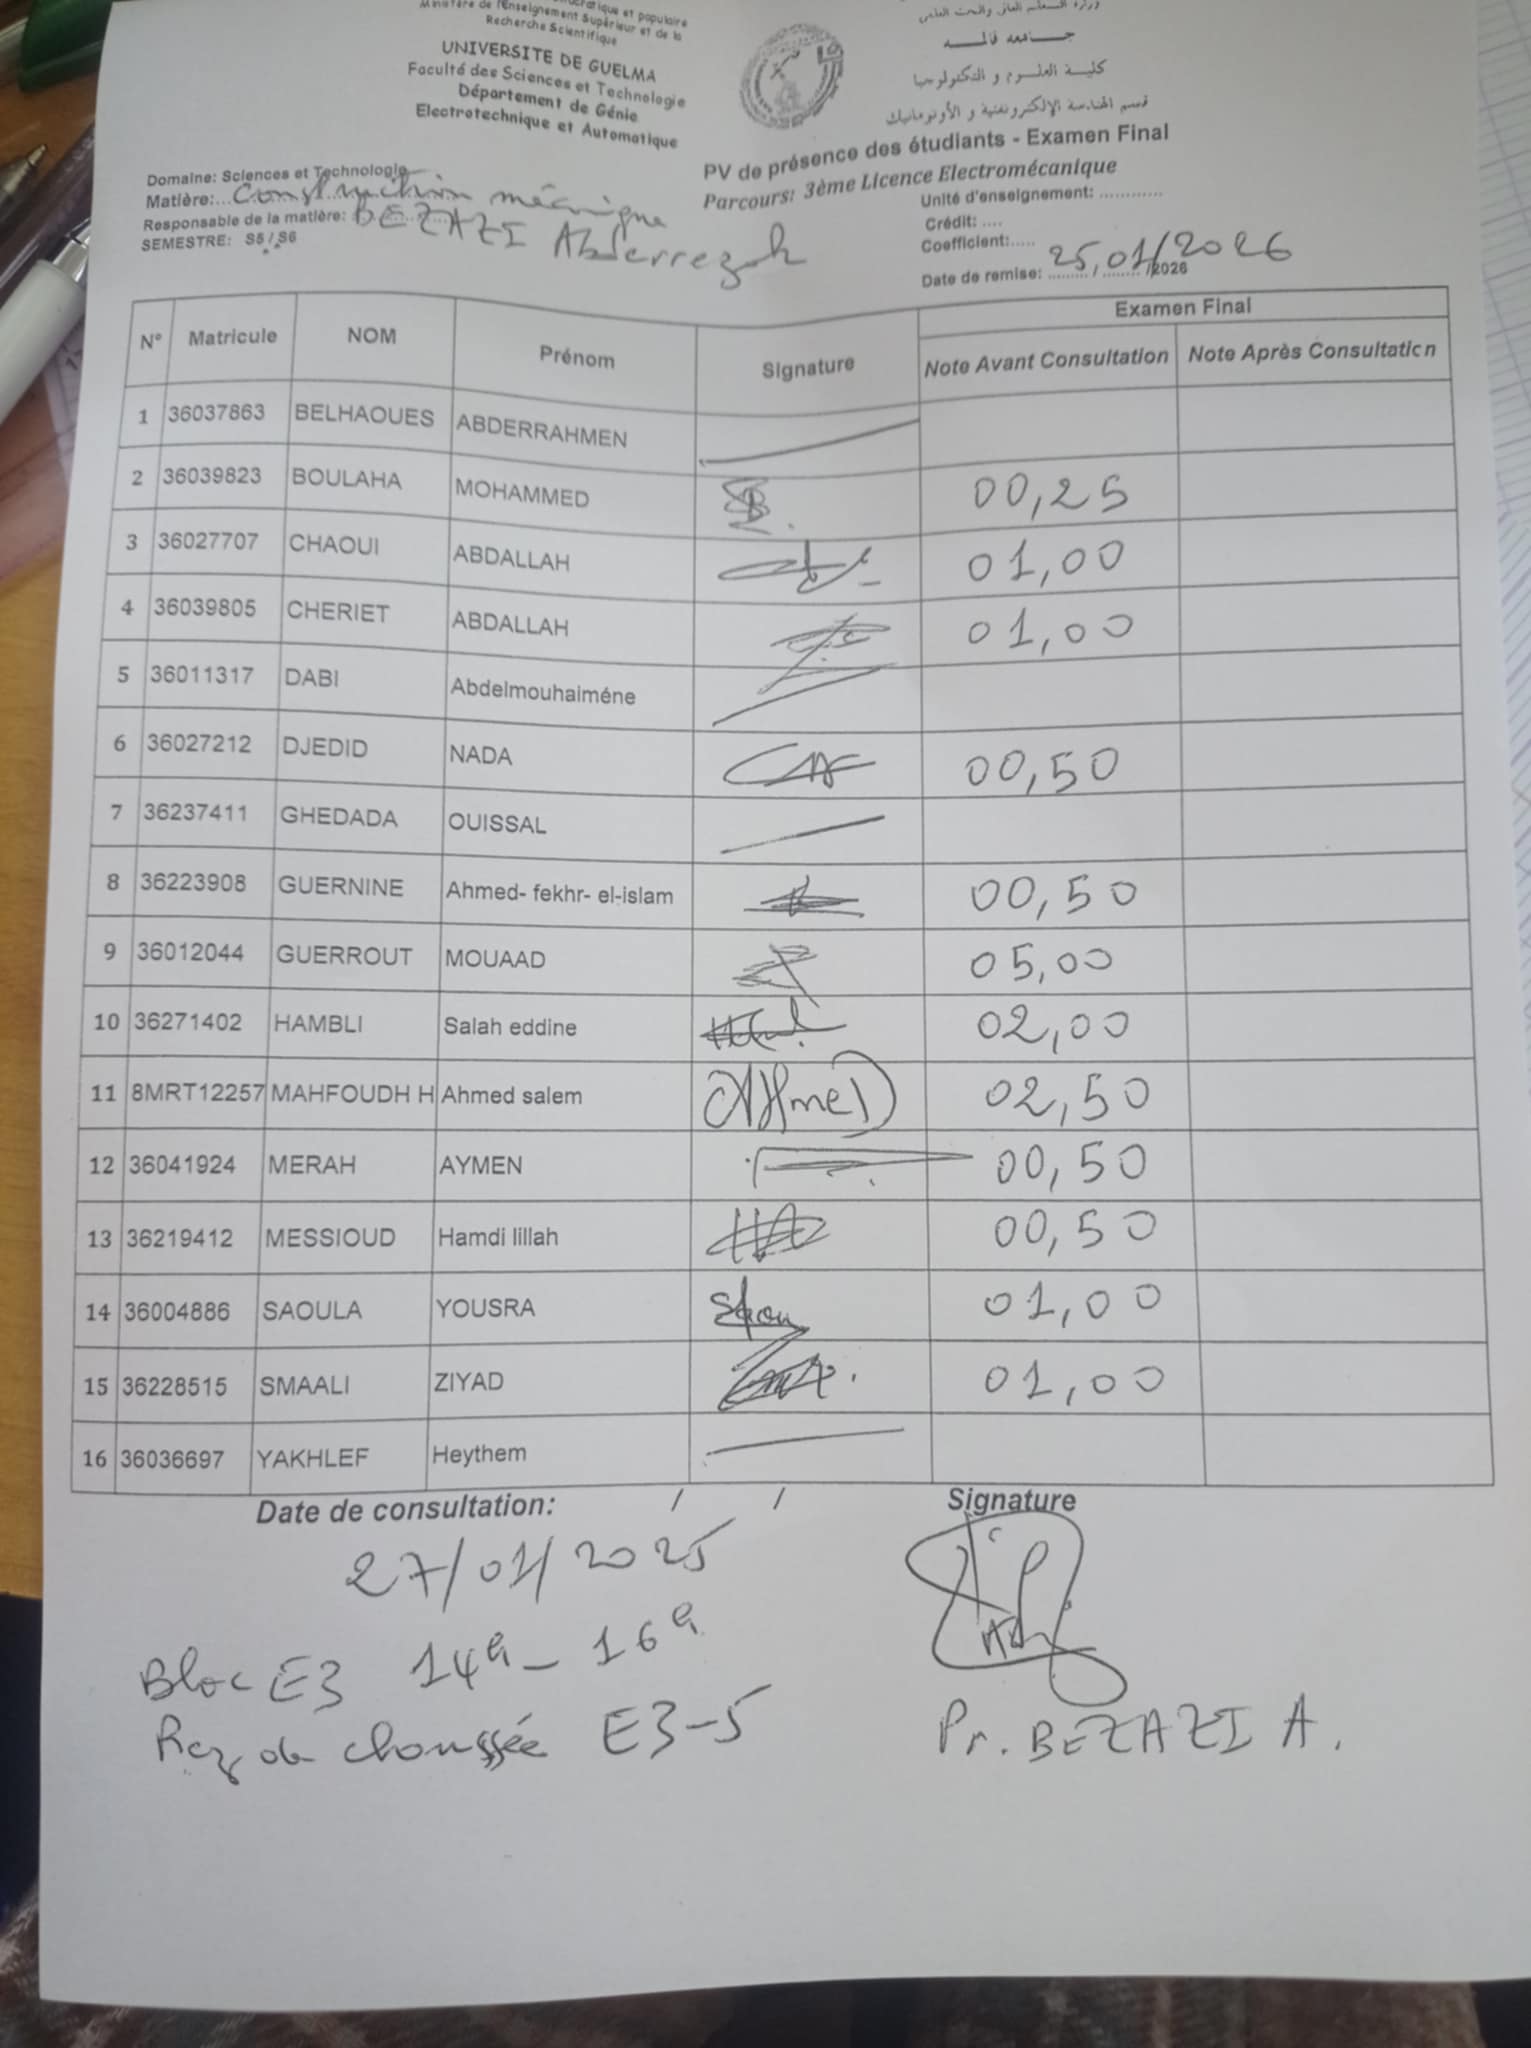 ocratique et populaire
Ministère de l'Enseignement Supérieur et de la
Recherche Scientifique
UNIVERSITE DE GUELMA
Faculté des Sciences et Technologie
Département de Génie
Electrotechnique et Automatique
جامعة قالمة
كلية العلوم و التكنولوجيا
قسم الهندسة الإلكتروتقنية و الأوتوماتيك
PV de présence des étudiants - Examen Final
Parcours: 3ème Licence Electromécanique
Domaine: Sciences et Technologie
Matière:... Construction mécanique
Responsable de la matière: BEZAZI Abderrezak
SEMESTRE: S5 / S6
Unité d'enseignement: ............
Crédit: ....
Coefficient:.....
Date de remise: ......... / ........ /2026 25,01/2026
N° Matricule NOM Prénom Signature Examen Final
Note Avant Consultation Note Après Consultation
1 36037863 BELHAOUES ABDERRAHMEN
2 36039823 BOULAHA MOHAMMED 00,25
3 36027707 CHAOUI ABDALLAH 01,00
4 36039805 CHERIET ABDALLAH 01,00
5 36011317 DABI Abdelmouhaiméne
6 36027212 DJEDID NADA 00,50
7 36237411 GHEDADA OUISSAL
8 36223908 GUERNINE Ahmed- fekhr- el-islam 00,50
9 36012044 GUERROUT MOUAAD 05,00
10 36271402 HAMBLI Salah eddine 02,00
11 8MRT12257 MAHFOUDH H Ahmed salem AHmeD 02,50
12 36041924 MERAH AYMEN 00,50
13 36219412 MESSIOUD Hamdi lillah 00,50
14 36004886 SAOULA YOUSRA 01,00
15 36228515 SMAALI ZIYAD 01,00
16 36036697 YAKHLEF Heythem
Date de consultation: / /
Signature
27/01/2025
Bloc E3 14h - 16h
Rez de choussée E3-5
Pr. BEZAZI A.